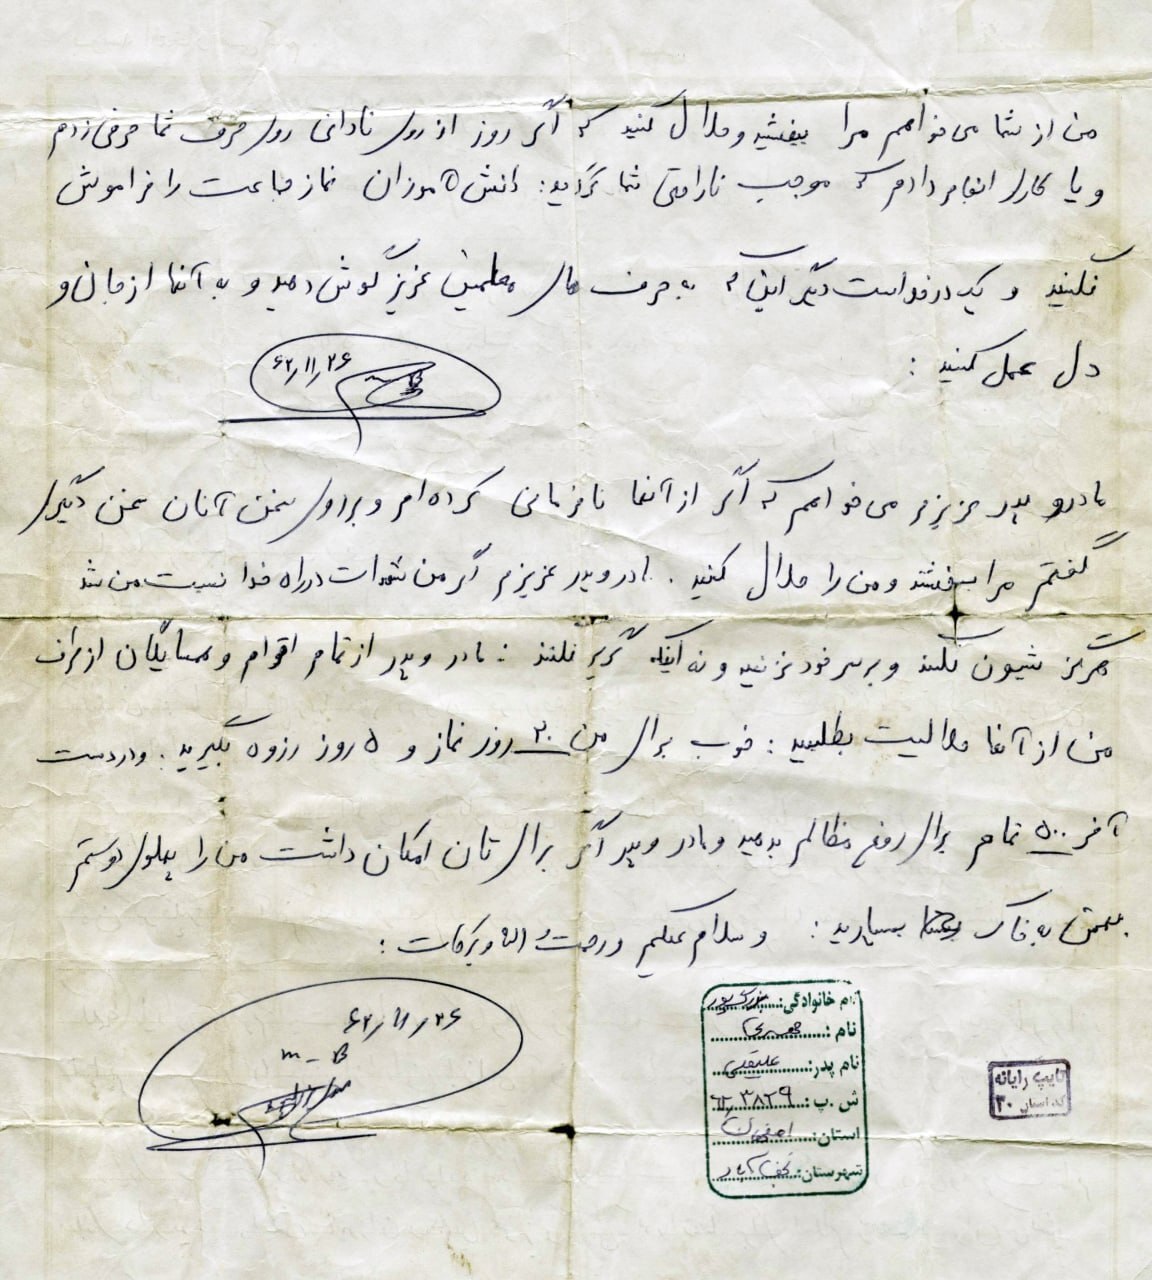 من از شما می‌خواهم مرا ببخشید و حلال کنید که اگر روز از روی نادانی روی حرف شما حرفی زدم
و یا کاری انجام دادم که موجب ناراحتی شما گردید: دانش آموزان نماز جماعت را فراموش
نکنید و یک درخواست دیگر اینکه به حرف های معلمین عزیز گوش دهید و به آنها از جان و
دل عمل کنید :
۶۲٫۱۱٫۲۶
مادر و پدر عزیزم می‌خواهم که اگر از آنها نافرمانی کرده‌ام و بر روی سخن آنان سخن دیگری
گفتم مرا ببخشند و من را حلال کنید . مادر و پدر عزیزم اگر من شهادت در راه خدا نصیب من شد
هرگز شیون نکنند و بر سر خود نزنید و نه اینکه گریه نکنند : مادر و پدر از تمام اقوام و همسایگان از طرف
من از آنها حلالیت بطلبید : خوب برای من ۲۰ روز نماز و ۵ روز رزوه بگیرید . و در دست
آخر ۵۰۰ تمام برای روفع مظالم بدهید و مادر و پدر اگر برای تان امکان داشت من را پهلوی دوستم
بهمن به خاک بسپارید : و سلام علیکم و رحمت الله و برکات :
۶۲٫۱۱٫۲۶
m-B
نام خانوادگی:
نام : مهدی
نام پدر: علیقلی
ش .پ : ۶۲ ۳۸۲۹
استان: اصفهان
شهرستان: نجف آباد
تایپ رایانه
کد استان ۲۰